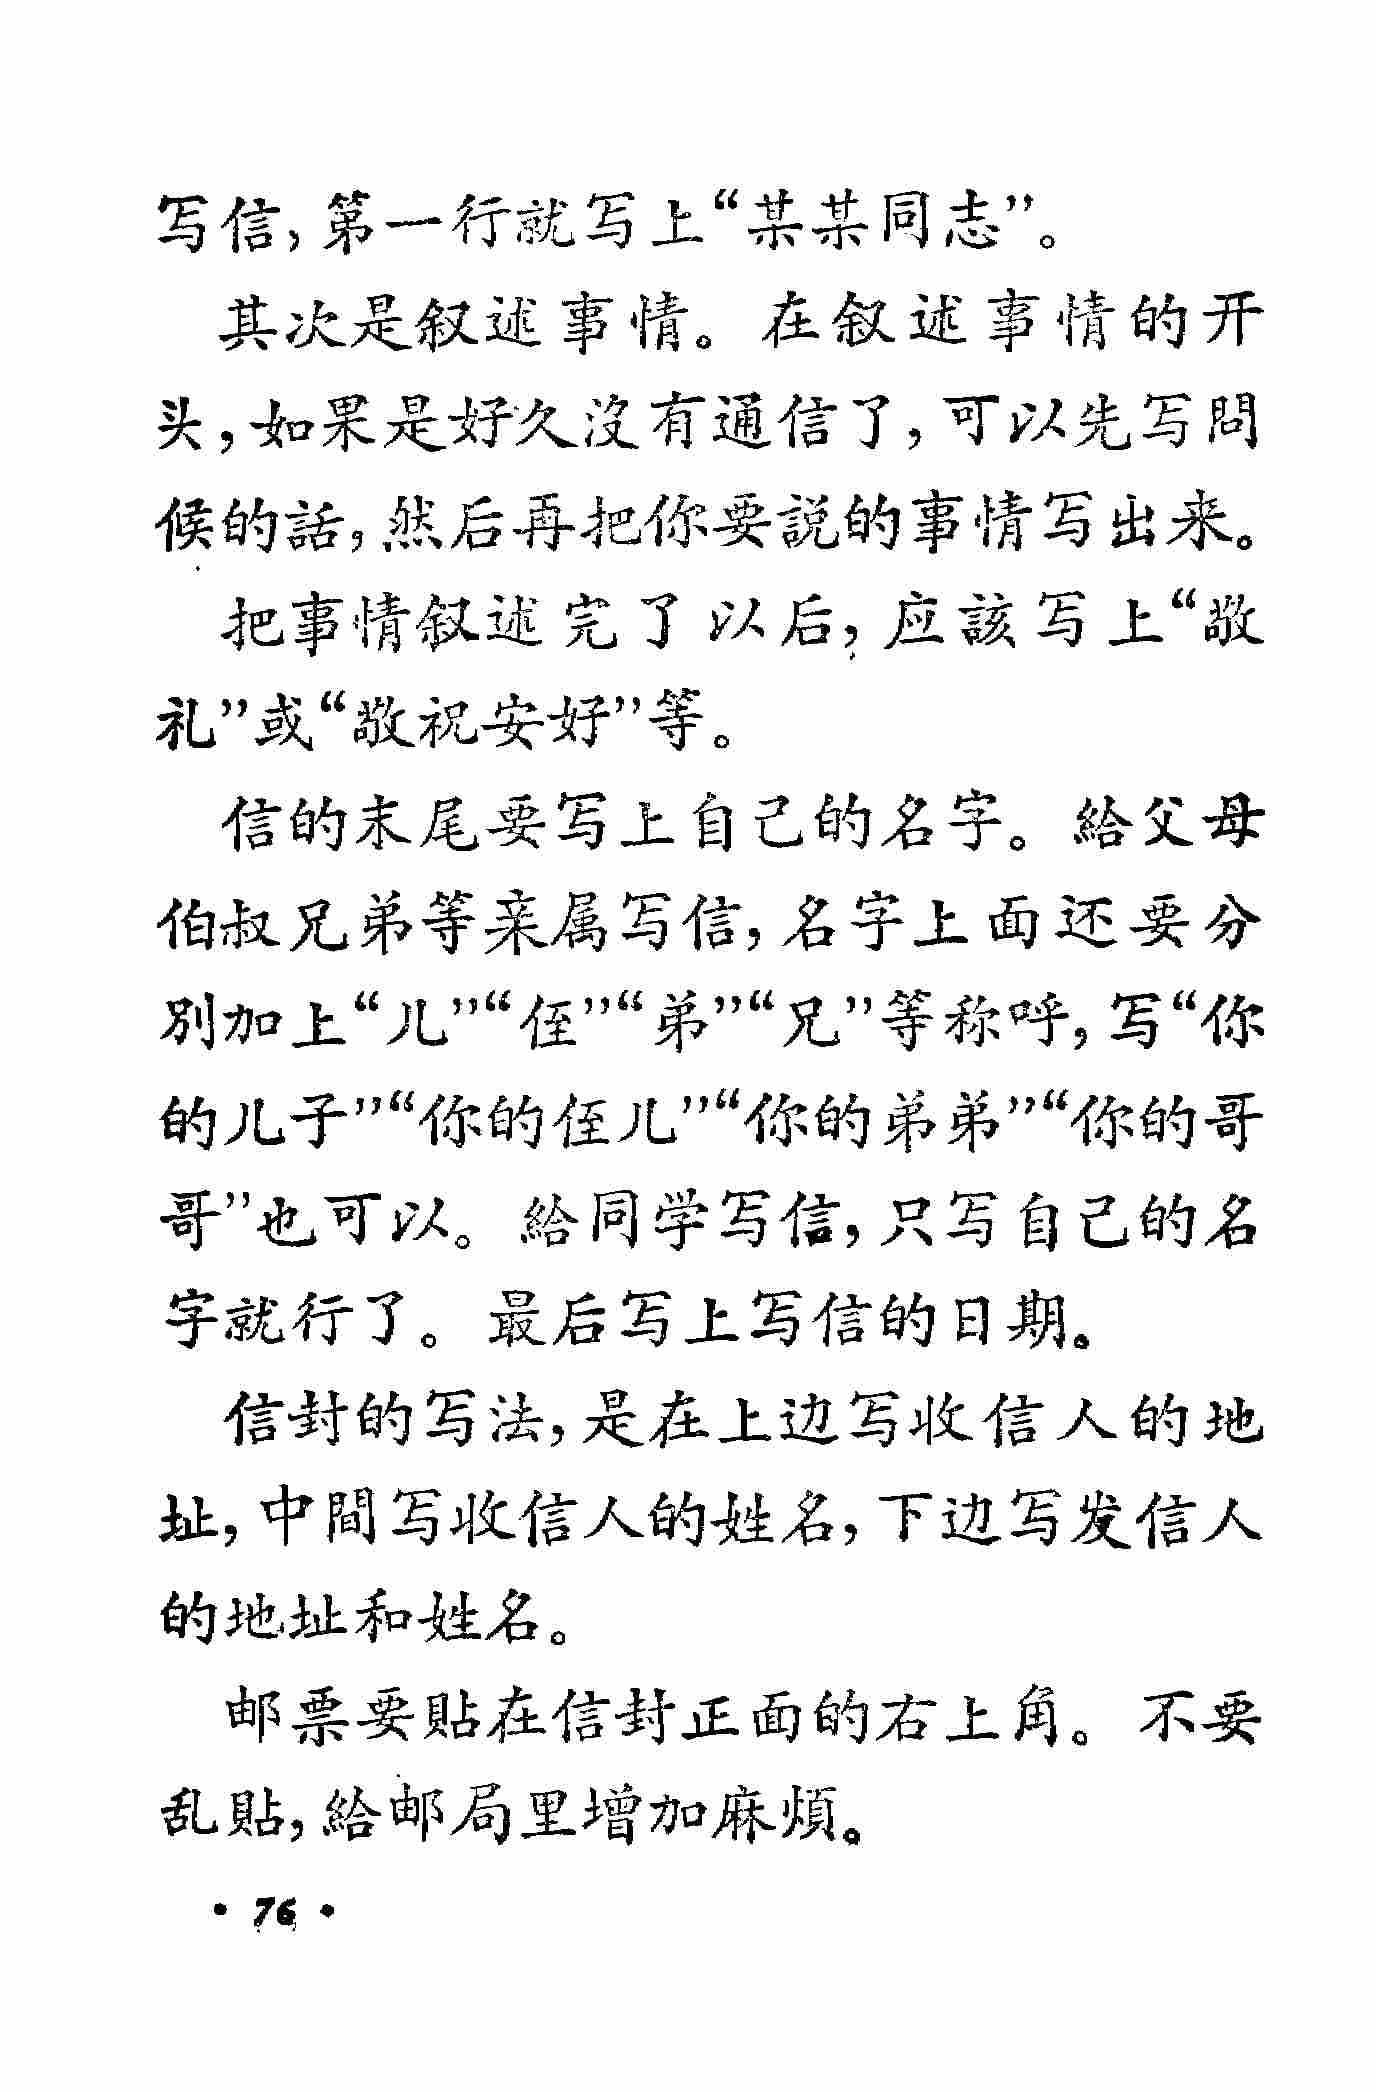 写信，第一行就写上“某某同志”。
其次是叙述事情。在叙述事情的开
头，如果是好久没有通信了，可以先写問
候的話，然后再把你要説的事情写出来。
把事情叙述完了以后，应該写上“敬
礼”或“敬祝安好”等。
信的末尾要写上自己的名字。給父母
伯叔兄弟等亲属写信，名字上面还要分
别加上“儿”“侄”“弟”“兄”等称呼，写“你
的儿子”“你的侄儿”“你的弟弟”“你的哥
哥”也可以。給同学写信，只写自己的名
字就行了。最后写上写信的日期。
信封的写法，是在上边写收信人的地
址，中間写收信人的姓名，下边写发信人
的地址和姓名。
邮票要貼在信封正面的右上角。不要
乱貼，給邮局里增加麻煩。
• 76 •